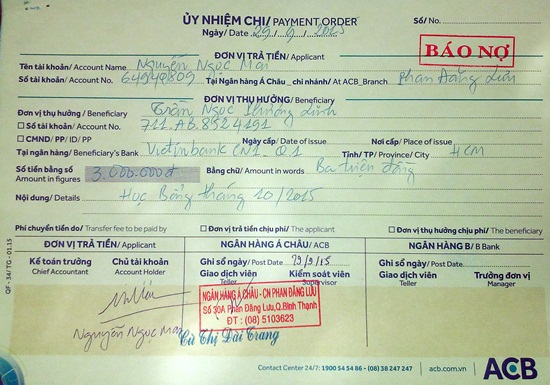 ỦY NHIỆM CHI/ PAYMENT ORDER
Số/ No.
Ngày/ Date 29/9/2015
ĐƠN VỊ TRẢ TIỀN/ Applicant
BÁO NỢ
Tên tài khoản/ Account Name Nguyễn Ngọc Mai
Số tài khoản/ Account No. 64940809 Tại Ngân hàng Á Châu_ chi nhánh/ At ACB_Branch Phan Đăng Lưu
ĐƠN VỊ THỤ HƯỞNG/ Beneficiary
Đơn vị thụ hưởng/ Beneficiary Trần Ngọc Linh
☐ Số tài khoản/ Account No. 711.AB.8524191
☐ CMND/ PP/ ID/ PP Ngày cấp/ Date of issue Nơi cấp/ Place of issue
Tại ngân hàng/ Beneficiary's Bank Vietinbank CN1. Q1 Tỉnh/ TP/ Province/ City HCM
Số tiền bằng số Amount in figures 3.000.000đ Bằng chữ/ Amount in words Ba triệu đồng
Nội dung/ Details Học Bổng tháng 10/2015
Phí chuyển tiền do/ Transfer fee to be paid by ☐ Đơn vị trả tiền chịu phí/ The applicant ☐ Đơn vị thụ hưởng chịu phí/ The beneficiary
ĐƠN VỊ TRẢ TIỀN/ Applicant NGÂN HÀNG Á CHÂU/ ACB NGÂN HÀNG B/ B Bank
Kế toán trưởng Chủ tài khoản Ghi sổ ngày/ Post Date 29/9/15 Ghi sổ ngày/ Post Date
Chief Accountant Account Holder Giao dịch viên Kiểm soát viên Giao dịch viên Trưởng đơn vị
Teller Supervisor Teller Manager
NGÂN HÀNG Á CHÂU - CN PHAN ĐĂNG LƯU
Số 30A Phan Đăng Lưu, Q.Bình Thạnh
ĐT : (08) 5103623
Nguyễn Ngọc Mai
Từ Thị Đài Trang
QF - 34/ TG - 01.15
Contact Center 24/7: 1900 54 54 86 - (08) 38 247 247
acb.com.vn
ACB